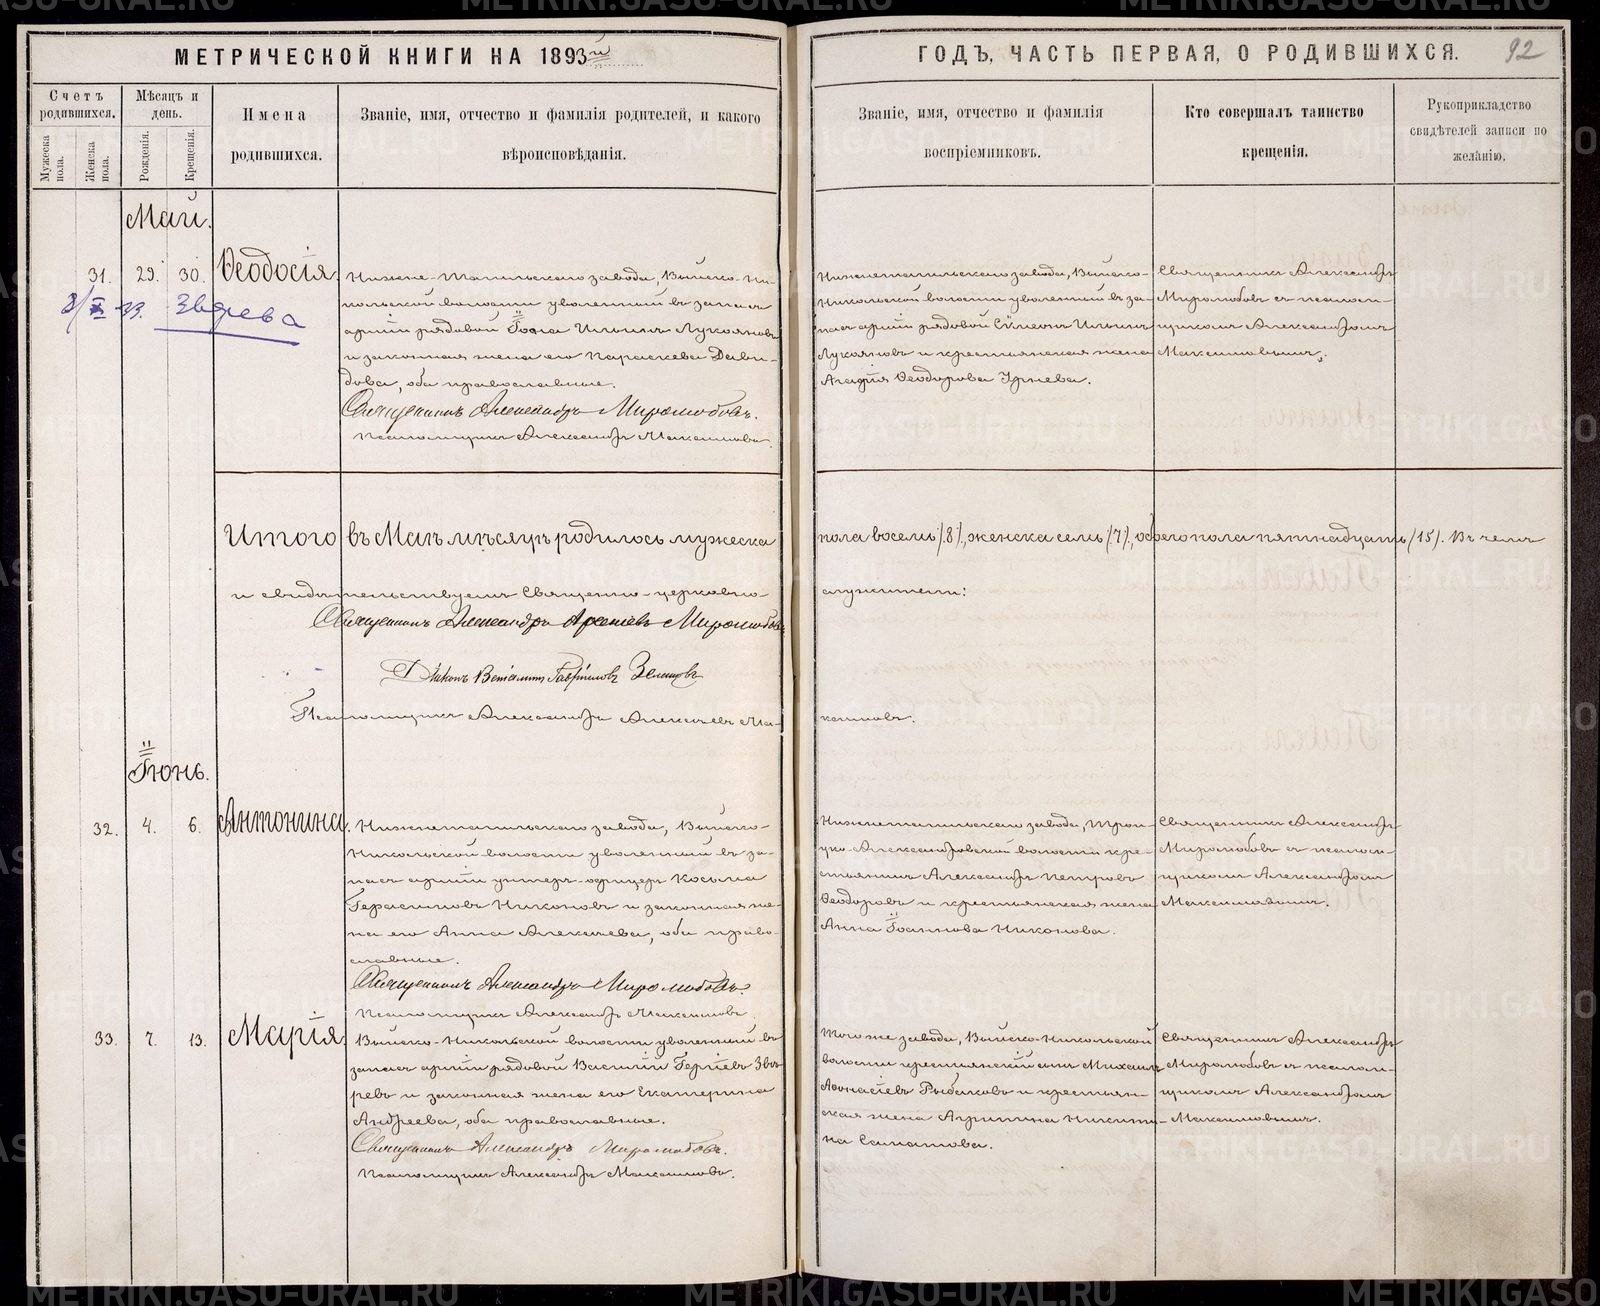 МЕТРИЧЕСКОЙ КНИГИ НА 1893й
ГОДЪ, ЧАСТЬ ПЕРВАЯ, О РОДИВШИХСЯ.
92
Счетъ родившихся.
Мужеска пола.
Женска пола.
Мѣсяцъ и день.
Рожденія.
Крещенія.
Имена
родившихся.
Званіе, имя, отчество и фамилія родителей, и какого
вѣроисповѣданія.
Званіе, имя, отчество и фамилія
воспріемниковъ.
Кто совершалъ таинство
крещенія.
Рукоприкладство
свидѣтелей записи по
желанію.
Май.
31. 29. 30. Ѳеодосія.
Зверева
Нижне-Тагильскаго завода, Выйско-Ни-
кольской волости уволенный въ запасъ
арміи рядовой Іоанъ Ильинъ Лукояновъ
и законная жена его Параскева Дави-
дова, оба православные.
Священникъ Александръ Миролюбовъ.
Псаломщикъ Александръ Максимовъ.
Нижнетагильскаго завода, Выйско-
Никольской волости уволенный въ за-
пасъ арміи рядовой Сѵмеонъ Ильинъ
Лукояновъ и крестьянская жена
Агафія Ѳеодорова
Священникъ Александръ
Миролюбовъ съ псалом-
щикомъ Александромъ
Максимовымъ.
Итого въ Маѣ мѣсяцѣ родилось мужеска пола восемь /8/, женска семь /7/, обоего пола пятнадцать /15/. Въ чемъ
и свидѣтельствуемъ Священно-церковно-служители:
Священникъ Александръ Арсеніевъ Миролюбовъ
Діаконъ Виталій Гавріиловъ
Псаломщикъ Александръ Алексѣевъ Максимовъ.
Іюнь.
32. 4. 6. Антонина.
Нижнетагильскаго завода, Выйско-
Никольской волости уволенный въ за-
пасъ арміи унтеръ-офицеръ Косьма
Герасимовъ Никоновъ и законная же-
на его Анна Алексѣева, оба право-
славные.
Священникъ Александръ Миролюбовъ.
Псаломщикъ Александръ Максимовъ.
Нижнетагильскаго завода, Трои-
цко-Александровской волости кре-
стьянинъ Александръ Петровъ
Ѳеодоровъ и крестьянская жена
Анна Іоаннова Никонова.
Священникъ Александръ
Миролюбовъ съ псалом-
щикомъ Александромъ
Максимовымъ.
33. 7. 13. Марія.
Выйско-Никольской волости уволенный въ
запасъ арміи рядовой Василій Звѣ-
ревъ и законная жена его Екатерина
Андреева, оба православные.
Священникъ Александръ Миролюбовъ.
Псаломщикъ Александръ Максимовъ.
Того же завода, Выйско-Никольской
волости крестьянскій сынъ Михаилъ
Аѳонасіевъ Рыбаковъ и крестьян-
ская жена Агрипина Никити-
на
Священникъ Александръ
Миролюбовъ съ псалом-
щикомъ Александромъ
Максимовымъ.
METRIKI.GASO-URAL.RU